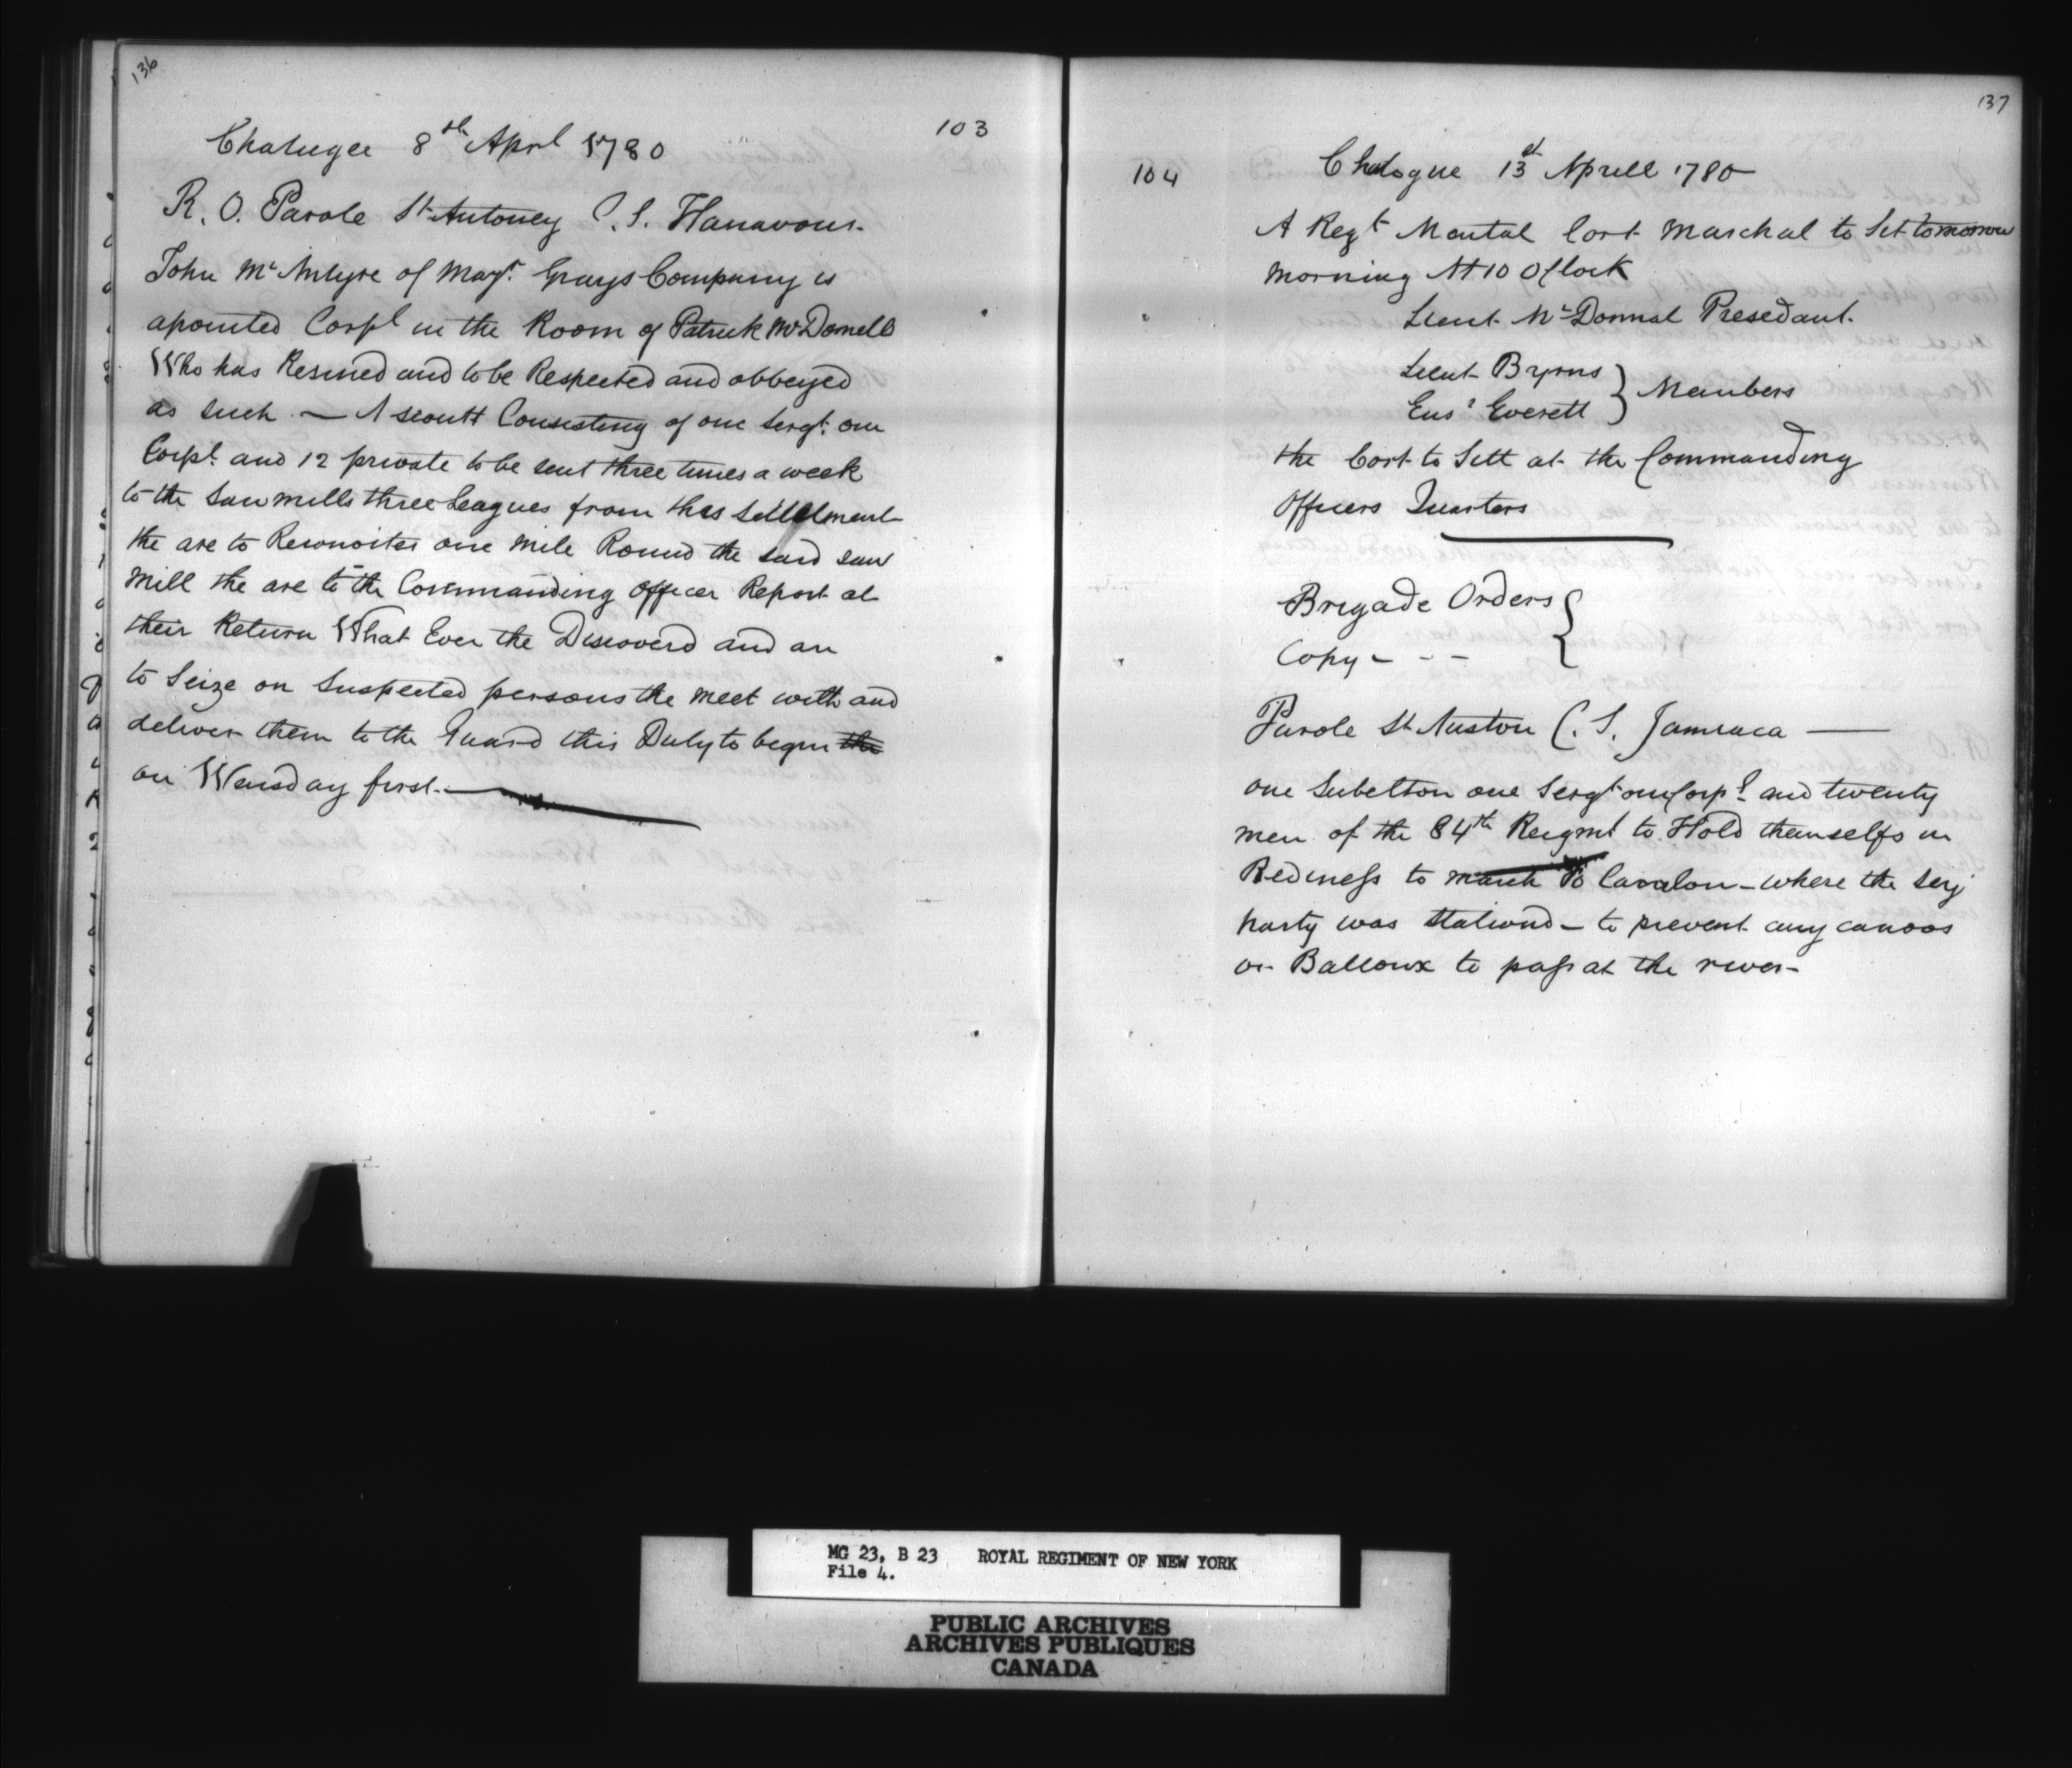 136
103
Chatugee 8th Aprl 1780
R. O. Parole St Antoney C. S. Hanavour.
John McIntyre of Majr. Grays Company is
apointed Corpl in the Room of Patrick McDonell
Who has Resined and to be Respected and obbeyed
as such — A scoutt Consisting of one Sergt. one
Corpl. and 12 private to be sent three times a week
to the Saw mills three Leagues from this Settelment
the are to Reconoiter one mile Round the said saw
Mill the are to the Commanding officer Report at
their Return What Ever the Discoverd and are
to Seize on Suspected persons the meet with and
deliver them to the Guard this Duty to begin the
on Wensday first. —
137
104
Chatogue 13st Aprell 1780
A Regt Mental Cort Marchal to Set tomorrow
Morning At 10 Oflock
Lieut. McDonnal Presedant.
Lieut Byrns } Members
Ensr Everett
the Cort to Sett at the Commanding
Officers Quarters
Brigade Orders {
Copy - - -
Parole St Auston C. S. Jameaca —
one Subelton one Sergt one Corpl and twenty
men of the 84th Reigmt to Hold themselfs in
Rediness to march to Cavalon - where the Serj
party was Stationd - to prevent any canoos
or Balloux to pass at the river -
MG 23, B 23 ROYAL REGIMENT OF NEW YORK
File 4.
PUBLIC ARCHIVES
ARCHIVES PUBLIQUES
CANADA